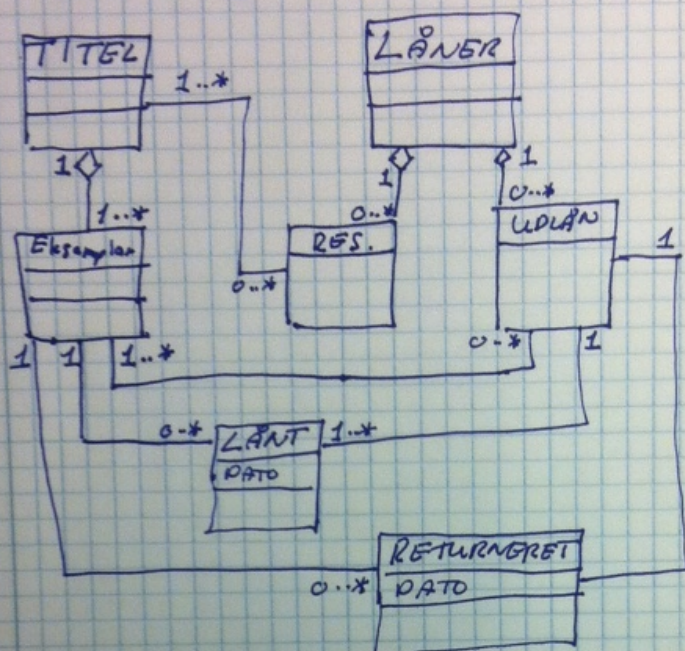 TITEL
LÅNER
1..*
1
1
1
1..*
0..*
0..*
Eksemplar
RES.
UDLÅN
1
0..*
1
1
1..*
0-*
1
0-*
LÅNT
1..*
DATO
RETURNERET
0..*
DATO